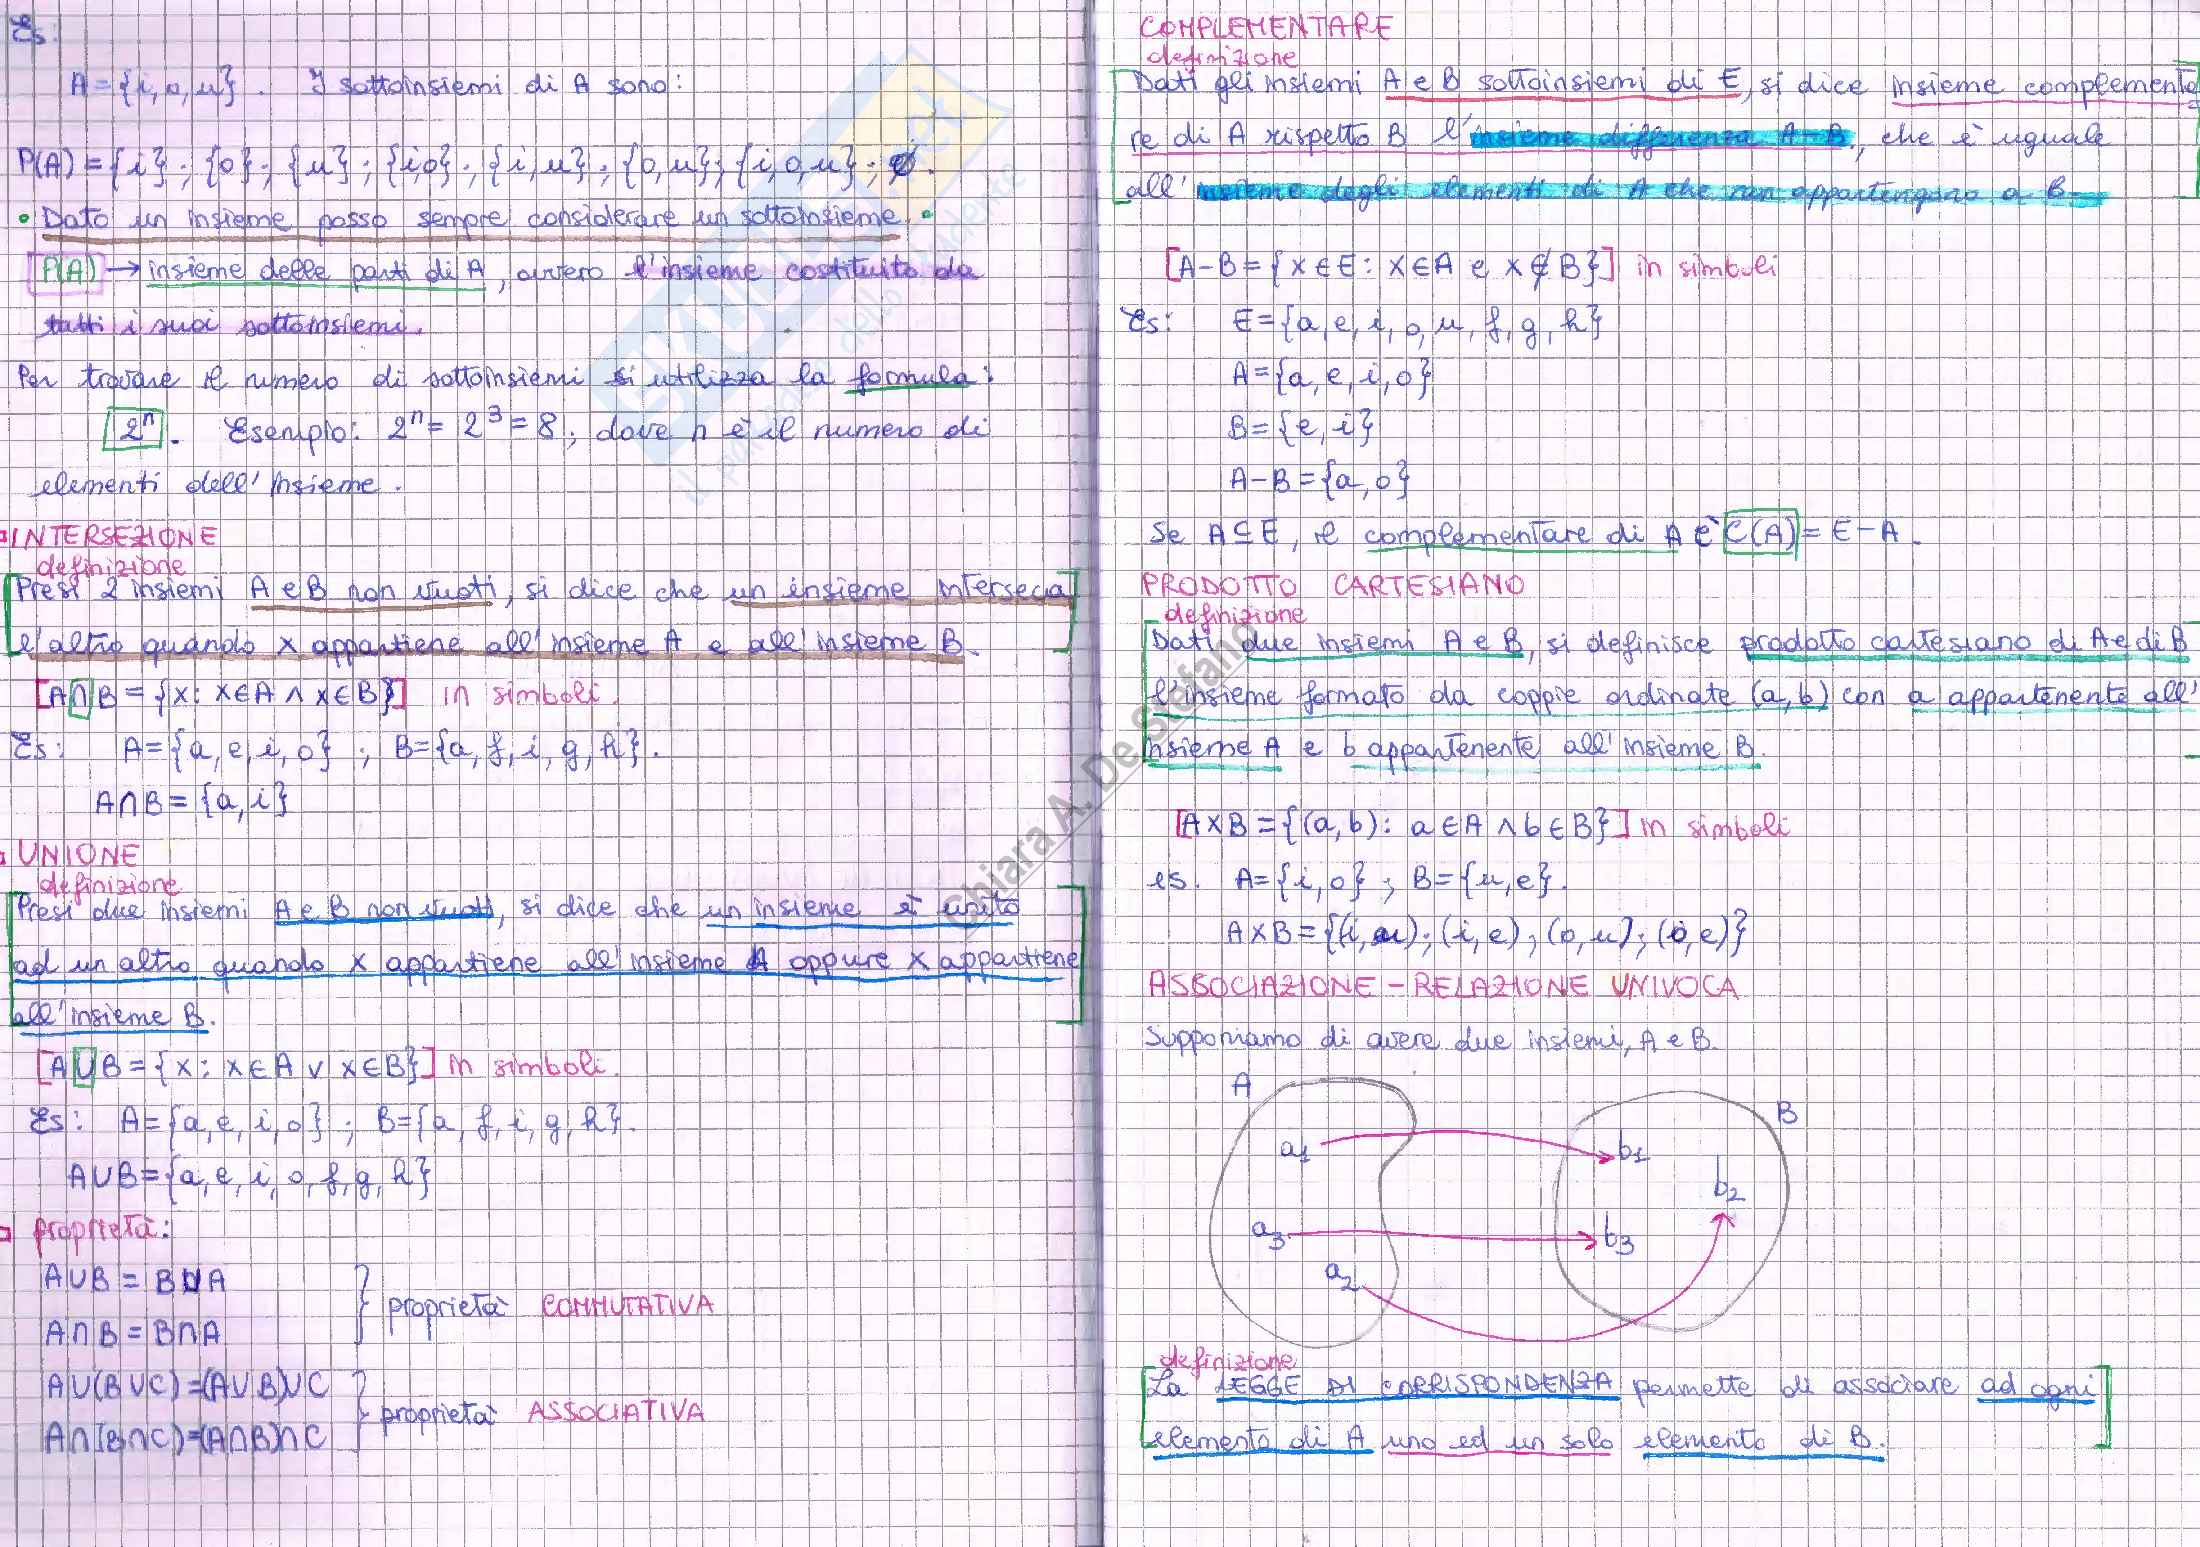 Es:
A = {i, o, u}. I sottoinsiemi di A sono:
P(A) = {i}; {o}; {u}; {i,o}; {i,u}; {o,u}; {i,o,u}; ∅.
• Dato un insieme posso sempre considerare un sottoinsieme. •
P(A) → insieme delle parti di A, ovvero l'insieme costituito da
tutti i suoi sottoinsiemi.
Per trovare il numero di sottoinsiemi si utilizza la formula:
2ⁿ. Esempio: 2ⁿ = 2³ = 8; dove n è il numero di
elementi dell'insieme.
INTERSEZIONE
definizione
Presi 2 insiemi A e B non vuoti, si dice che un insieme interseca
l'altro quando x appartiene all'insieme A e all'insieme B.
[A∩B = {x: x∈A ∧ x∈B}] in simboli.
Es: A={a,e,i,o} ; B={a,f,i,g,h}.
A∩B = {a,i}
UNIONE
definizione
Presi due insiemi A e B non vuoti, si dice che un insieme è unito
ad un altro quando x appartiene all'insieme A oppure x appartiene
all'insieme B.
[A∪B = {x: x∈A ∨ x∈B}] in simboli.
Es: A={a,e,i,o} ; B={a,f,i,g,h}.
A∪B={a,e,i,o,f,g,h}
proprietà:
A∪B = B∪A
A∩B = B∩A
} proprietà COMMUTATIVA
A∪(B∪C)=(A∪B)∪C
A∩(B∩C)=(A∩B)∩C
} proprietà ASSOCIATIVA
COMPLEMENTARE
definizione
Dati gli insiemi A e B sottoinsiemi di E, si dice insieme complementa
re di A rispetto B l'insieme differenza A-B, che è uguale
all'insieme degli elementi di A che non appartengono a B.
[A-B = {x∈E: x∈A e x∉B}] in simboli
Es: E={a,e,i,o,u,f,g,h}
A={a,e,i,o}
B={e,i}
A-B={a,o}
Se A⊆E, il complementare di A è C(A) = E-A.
PRODOTTO CARTESIANO
definizione
Dati due insiemi A e B, si definisce prodotto cartesiano di A e di B
l'insieme formato da coppie ordinate (a,b) con a appartenente all'
insieme A e b appartenente all'insieme B.
[A×B = {(a,b): a∈A ∧ b∈B}] in simboli
es. A={i,o} ; B={u,e}.
A×B={(i,u);(i,e);(o,u);(o,e)}
ASSOCIAZIONE - RELAZIONE UNIVOCA
Supponiamo di avere due insiemi, A e B.
A
B
a1
b1
b2
a3
b3
a2
definizione
La LEGGE DI CORRISPONDENZA permette di associare ad ogni
elemento di A uno ed un solo elemento di B.
Chiara A. De Stefano